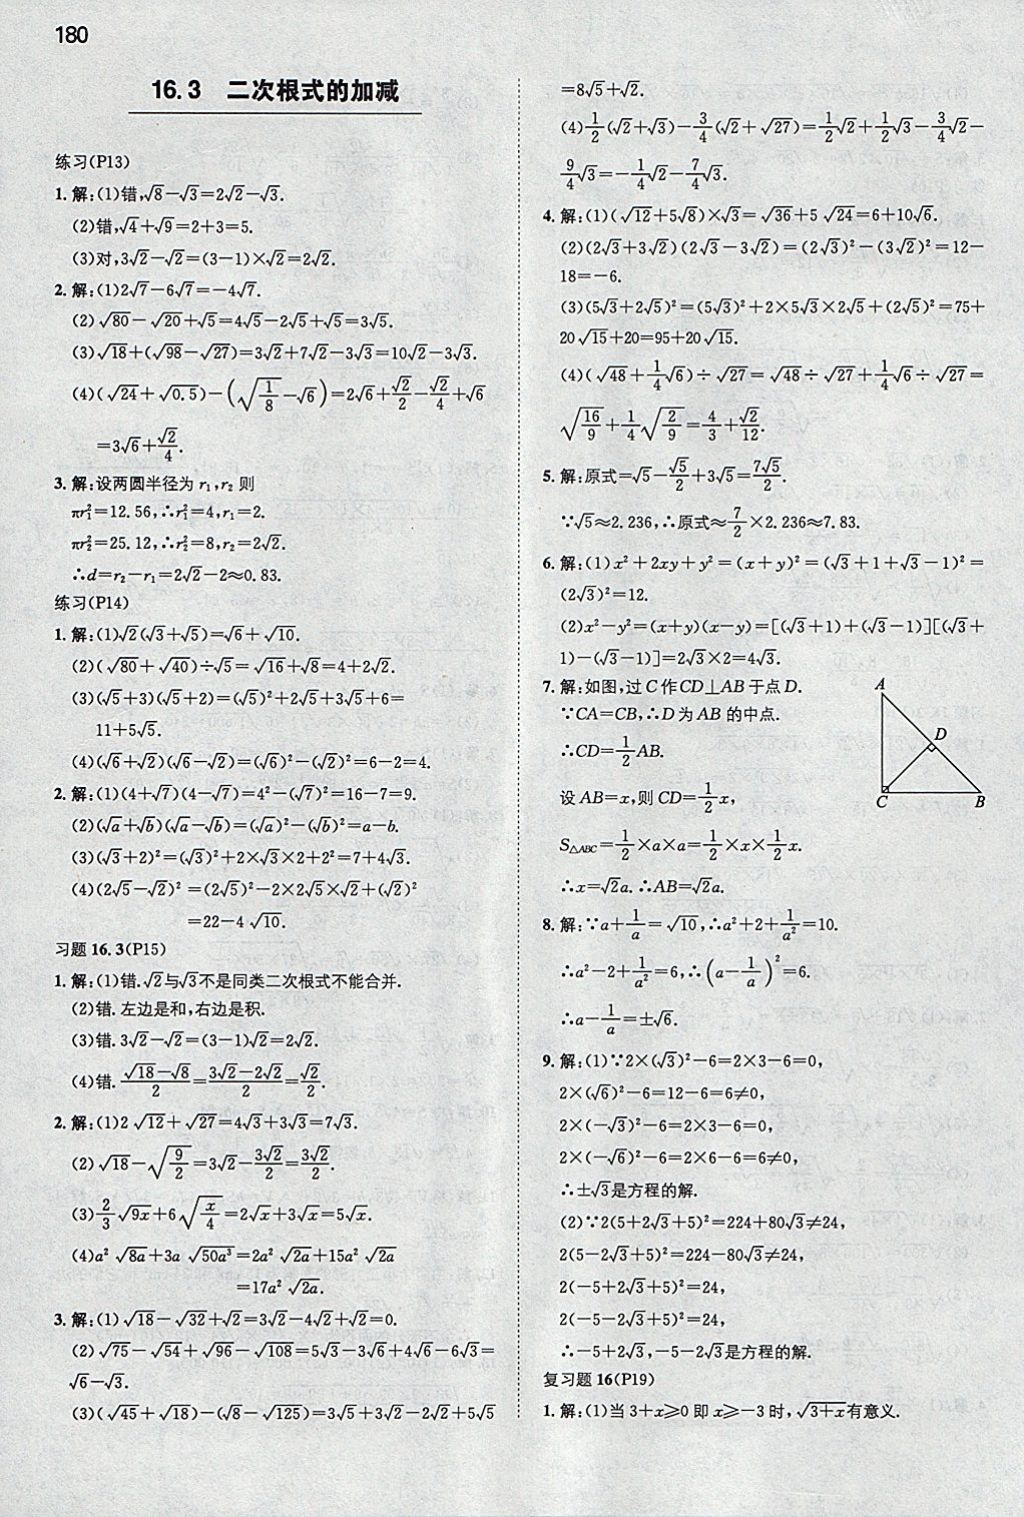 180
16.3 二次根式的加减
练习(P13)
1.解:(1)错,√8−√3=2√2−√3.
(2)错,√4+√9=2+3=5.
(3)对,3√2−√2=(3−1)×√2=2√2.
2.解:(1)2√7−6√7=−4√7.
(2)√80−√20+√5=4√5−2√5+√5=3√5.
(3)√18+(√98−√27)=3√2+7√2−3√3=10√2−3√3.
(4)(√24+√0.5)−(√(1/8)−√6)=2√6+√2/2−√2/4+√6
=3√6+√2/4.
3.解:设两圆半径为 r₁,r₂ 则
πr₁²=12.56,∴r₁²=4,r₁=2.
πr₂²=25.12,∴r₂²=8,r₂=2√2.
∴d=r₂−r₁=2√2−2≈0.83.
练习(P14)
1.解:(1)√2(√3+√5)=√6+√10.
(2)(√80+√40)÷√5=√16+√8=4+2√2.
(3)(√5+3)(√5+2)=(√5)²+2√5+3√5+6=
11+5√5.
(4)(√6+√2)(√6−√2)=(√6)²−(√2)²=6−2=4.
2.解:(1)(4+√7)(4−√7)=4²−(√7)²=16−7=9.
(2)(√a+√b)(√a−√b)=(√a)²−(√b)²=a−b.
(3)(√3+2)²=(√3)²+2×√3×2+2²=7+4√3.
(4)(2√5−√2)²=(2√5)²−2×2√5×√2+(√2)²
=22−4√10.
习题 16.3(P15)
1.解:(1)错.√2与√3不是同类二次根式不能合并.
(2)错.左边是和,右边是积.
(3)错.3√2−√2=(3−1)√2=2√2.
(4)错.(√18−√8)/2=(3√2−2√2)/2=√2/2.
2.解:(1)2√12+√27=4√3+3√3=7√3.
(2)√18−√(9/2)=3√2−3√2/2=3√2/2.
(3)2/3√9x+6√(x/4)=2√x+3√x=5√x.
(4)a²√8a+3a√50a³=2a²√2a+15a²√2a
=17a²√2a.
3.解:(1)√18−√32+√2=3√2−4√2+√2=0.
(2)√75−√54+√96−√108=5√3−3√6+4√6−6√3=
√6−√3.
(3)(√45+√18)−(√8−√125)=3√5+3√2−2√2+5√5
=8√5+√2.
(4)1/2(√2+√3)−3/4(√2+√27)=1/2√2+1/2√3−3/4√2−
9/4√3=−1/4√2−7/4√3.
4.解:(1)(√12+5√8)×√3=√36+5√24=6+10√6.
(2)(2√3+3√2)(2√3−3√2)=(2√3)²−(3√2)²=12−
18=−6.
(3)(5√3+2√5)²=(5√3)²+2×5√3×2√5+(2√5)²=75+
20√15+20=95+20√15.
(4)(√48+1/4√6)÷√27=√48÷√27+1/4√6÷√27=
√(16/9)+1/4√(2/9)=4/3+√2/12.
5.解:原式=√5−√5/2+3√5=7√5/2.
∵√5≈2.236,∴原式≈7/2×2.236≈7.83.
6.解:(1)x²+2xy+y²=(x+y)²=(√3+1+√3−1)²=
(2√3)²=12.
(2)x²−y²=(x+y)(x−y)=[(√3+1)+(√3−1)][(√3+
1)−(√3−1)]=2√3×2=4√3.
7.解:如图,过C作CD⊥AB于点D.
∵CA=CB,∴D为AB的中点.
∴CD=1/2AB.
设AB=x,则CD=1/2x,
S△ABC=1/2×a×a=1/2×x×1/2x.
∴x=√2a.∴AB=√2a.
A
D
C
B
8.解:∵a+1/a=√10,∴a²+2+1/a²=10.
∴a²−2+1/a²=6,∴(a−1/a)²=6.
∴a−1/a=±√6.
9.解:(1)∵2×(√3)²−6=2×3−6=0,
2×(√6)²−6=12−6=6≠0,
2×(−√3)²−6=2×3−6=0,
2×(−√6)²−6=2×6−6=6≠0,
∴±√3是方程的解.
(2)∵2(5+2√3+5)²=224+80√3≠24,
2(5−2√3+5)²=224−80√3≠24,
2(−5+2√3+5)²=24,
2(−5−2√3+5)²=24,
∴−5+2√3,−5−2√3是方程的解.
复习题 16(P19)
1.解:(1)当3+x≥0即x≥−3时,√3+x有意义.